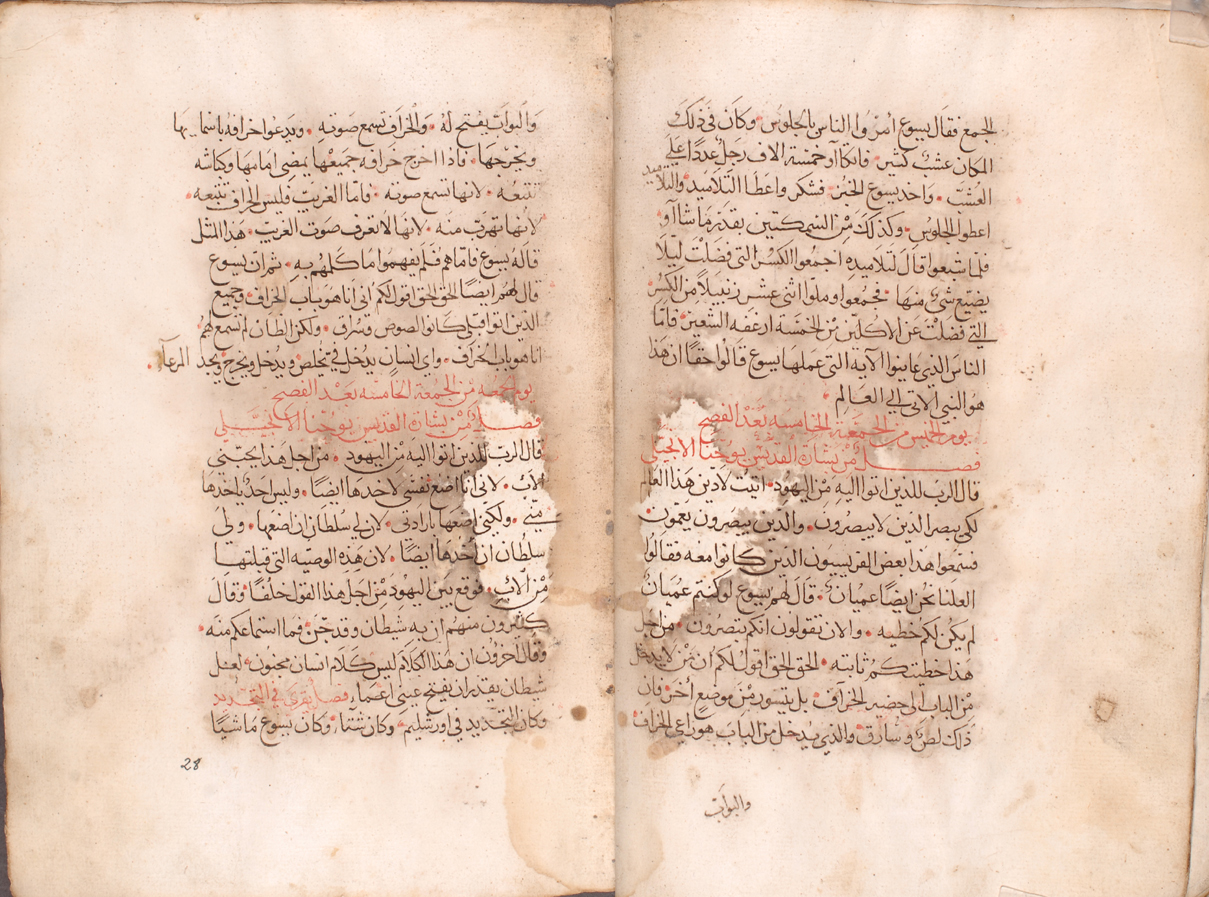 الجمع فقال يسوع امروا الناس بالجلوس • وكان في ذلك
المكان عشب كثير • فاتكا آو خمسة الاف رجل عددًا على
العشب • واخد يسوع الخبز • فشكر واعطا التلاميد والتلاميد
اعطوا الجلوس • وكدلك من السمكتين بقدر ما شاآو
فلما شبعوا قال لتلاميده اجمعوا الكسر التي فضلت ليلا
يضيع شيء منها • فجمعوا وملوا اثنى عشر زنبيلاً من الكسر
التي فضلت عن الاكلين من الخمسة ارغفه الشعير • فاما
الناس الدي عاينوا الآيه التي عملها يسوع قالوا حقًا ان هذا
هو النبي الاتي الي العالم •
يوم الخميس من الجمعة الخامسه بعد الفصح
فصل من بشارة القديس يوحنا الانجيلي
قال الرب للدين اتوا اليه من اليهود • اتيت لادين هذا العالم
لكي يبصر الدين لا يبصرون • والدين يبصرون يعمون
فسمعوا هدا بعض الفريسيون الدين كانوا معه فقالوا
العلنا نحن ايضًا عميان • قال لهم يسوع لو كنتم عميانً
لم يكن لكم خطيه • والان تقولون انكم تبصرون • من اجل
هدا خطيتكم ثابته • الحق الحق اقول لكم ان من لا يدخل
من الباب الى حضير الخراف • بل يتسور من موضع أخر • فان
ذلك لص وسارق • والدي يدخل من الباب هو راعي الخراف
والبواب
والبواب يفتح له • والخراف تسمع صوته • ويدعوا خرافه باسمايها
ويخرجها • فادا اخرج خرافه جميعها يمضى امامها وكباشه
تتبعه • لانها تسمع صوته • فاما الغريب فليس الخراف تتبعه
لانها تهرب منه • لانها لا تعرف صوت الغريب • هدا المثل
قاله يسوع فاما هم فلم يفهموا ما كلمهم به • ثم ان يسوع
قال لهم ايضًا الحق الحق اقول لكم انى أنا هو باب الخراف • وجميع
الدين اتوا قبلي كانوا لصوص وسراق • ولكن الطان لم تسمع لهم
انا هو باب الخراف • واى انسان يدخل في تخلص ويدخل ويخرج ويجد المرعا •
يوم الجمعه من الجمعة الخامسه بعد الفصح
فصل من بشارة القديس يوحنا الانجيلي
قال الرب للدين اتوا اليه من اليهود • من اجل هدا يحبنى
الاب • لانى انا اضع نفسى لاخدها ايضًا • وليس احد ياخدها
منى • ولكنى اضعها بارادتي • لان لي سلطان ان اضعها • ولي
سلطان ان أخدها ايضًا • لان هده الوصيه التي قبلتها
من الاب • فوقع بين اليهود من اجل هدا القول خلفًا • وقال
كثيرون منهم ان به شيطان وقد جن • فما استماعكم منه •
وقال اخرون ان هدا الكلام ليس كلام انسان مجنون • لعل
شيطان يقدر ان يفتح عيني اعما • فصل يقرى في التجديد
وكان التجديد في اورشليم • وكان شتاء • وكان يسوع ماشيًا
28